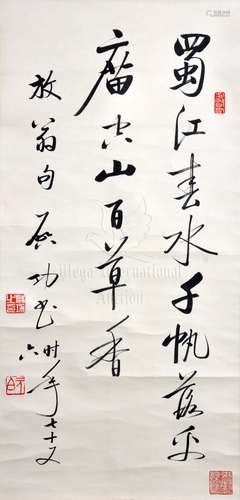 蜀江春水千帆落禹
庿空山百草香
放翁句 启功书 时年七十又
六
Omega International
Auction